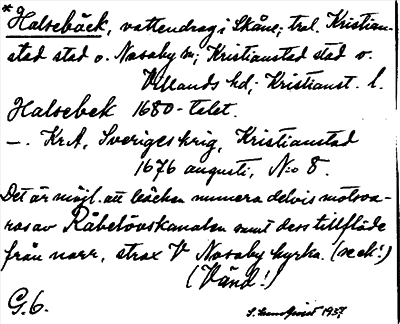 *Halsebäck, vattendrag i Skåne; trol. Kristian-
stad stad o. Nosaby sn; Kristianstad stad o.
Villands hd; Kristianst. l.
Halsebek 1680-talet.
—. KrA, Sveriges krig, Kristianstad
1676 augusti, N:o 8.
Det är möjl. att bäcken numera delvis motsva-
ras av Råbelövskanalen samt dess tillflöde
från norr, strax V Nosaby kyrka. (se ek!)
(Vänd!)
G.6.
1957